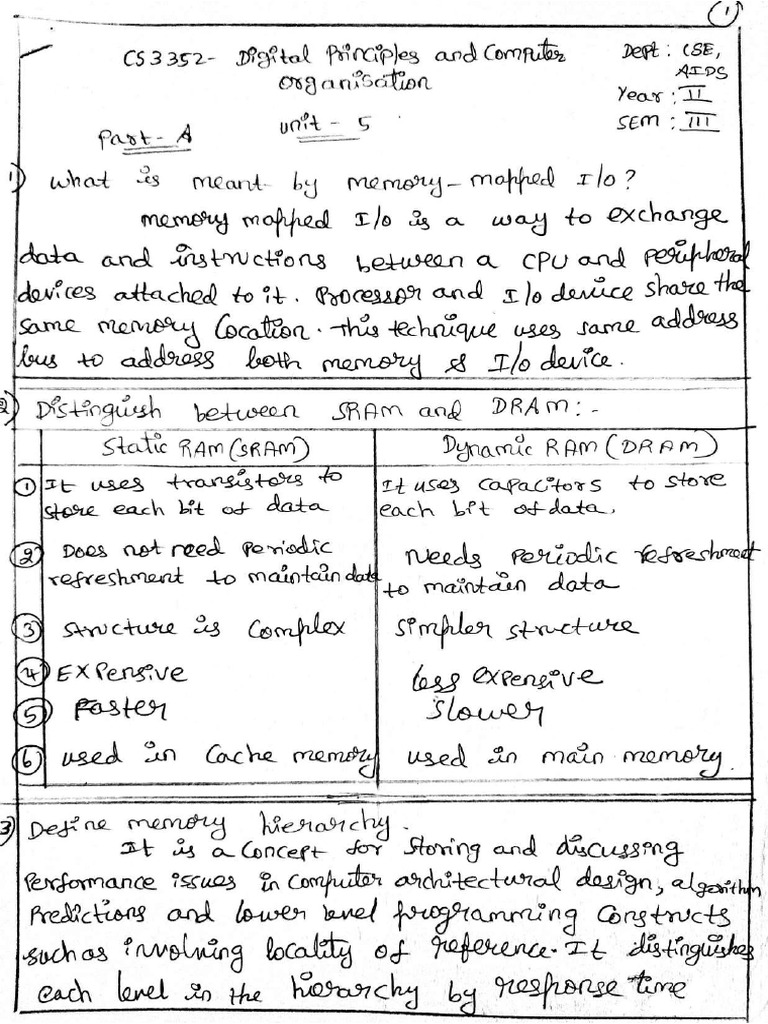 1
CS3352- Digital Principles and Computer
Organisation
Dept : CSE,
AIDS
Year : II
SEM : III
Part- A
Unit - 5
1) What is meant by memory-mapped I/O?
memory mapped I/O is a way to exchange
data and instructions between a CPU and peripheral
devices attached to it. Processor and I/O device share the
same memory Location. This technique uses same address
bus to address both memory & I/O device.
2) Distinguish between SRAM and DRAM:-
Static RAM (SRAM) Dynamic RAM (DRAM)
① It uses transistors to It uses capacitors to store
store each bit of data each bit of data.
② Does not need Periodic Needs Periodic refreshment
refreshment to maintain data to maintain data
③ Structure is Complex Simpler structure
④ Expensive Less expensive
⑤ Faster Slower
⑥ used in Cache memory used in main memory.
3) Define memory hierarchy.
It is a Concept for Storing and discussing
Performance issues in Computer architectural design, algorithm
Predictions and lower level programming Constructs
such as involving locality of reference. It distinguishes
each level in the hierarchy by response time